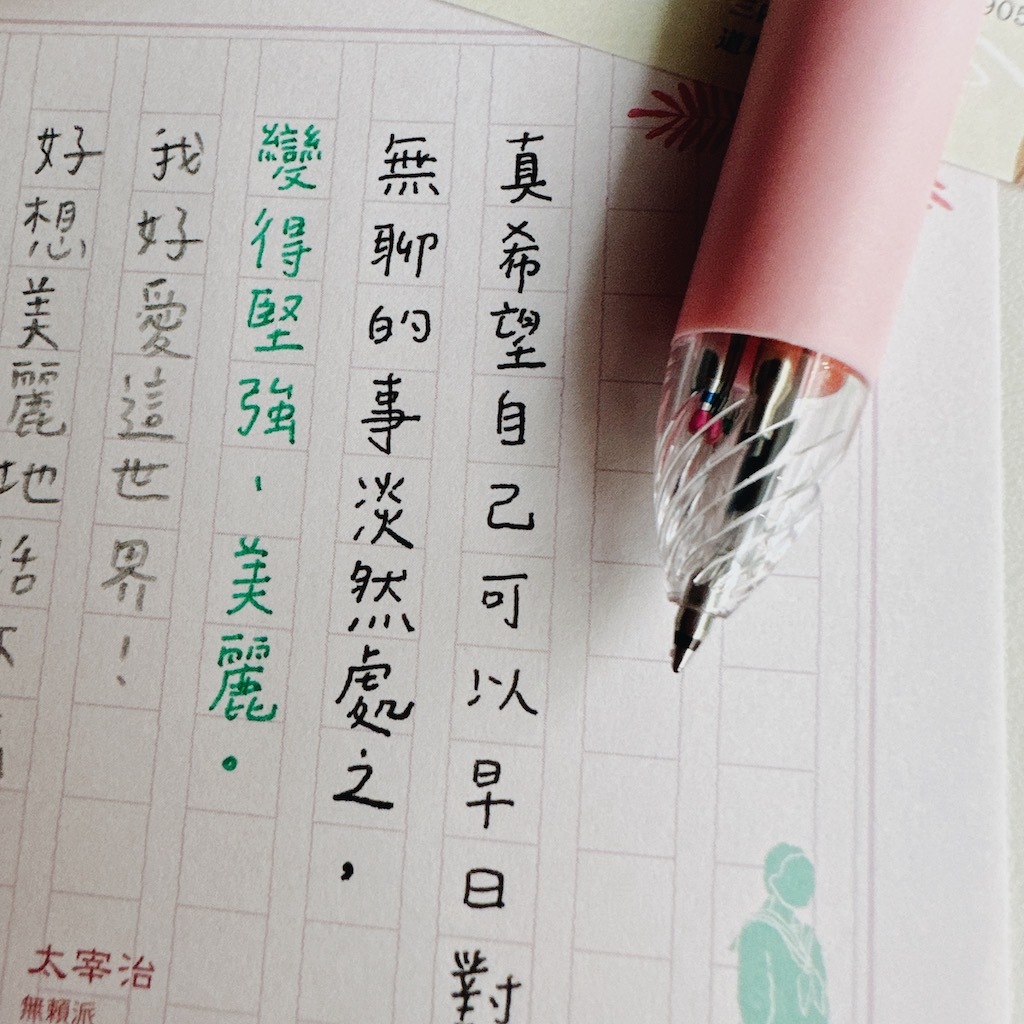 真希望自己可以早日對
無聊的事淡然處之，
變得堅強、美麗。
我好愛這世界！
好想美麗地活
太宰治
無賴派
905